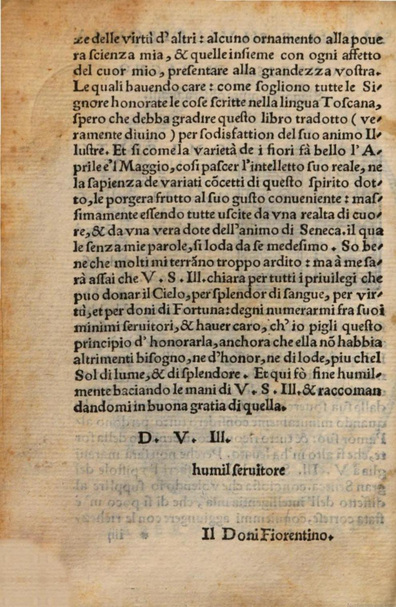 ze delle virtù d'altri: alcuno ornamento alla poue
ra scienza mia, & quelle insieme con ogni affetto
del cuor mio, presentare alla grandezza vostra.
Le quali hauendo care: come sogliono tutte le Si/
gnore honorate le cose scritte nella lingua Toscana,
spero che debba gradire questo libro tradotto (ve/
ramente diuino) per sodisfattion del suo animo Il/
lustre. Et si come la varietà de i fiori fà bello l'A/
prile e'l Maggio, cosi pascer l'intelletto suo reale, ne
la sapienza de variati cōcetti di questo spirito dot/
to, le porgera frutto al suo gusto conueniente: mas/
simamente essendo tutte uscite da vna realta di cuo/
re, & da vna vera dote dell'animo di Seneca. il qua
le senza mie parole, si loda da se medesimo. So be/
ne che molti mi terrāno troppo ardito: ma à me sa/
rà assai che V. S. Ill. chiara per tutti i priuilegi che
puo donar il Cielo, per splendor di sangue, per vir/
tù, et per doni di Fortuna: degni numerarmi fra suoi
minimi seruitori, & hauer caro, ch'io pigli questo
principio d'honorarla, anchora che ella nō habbia
altrimenti bisogno, ne d'honor, ne di lode, piu che'l
Sol di lume, & di splendore. Et qui fò fine humil/
mente baciando le mani di V. S. Ill. & raccoman
dandomi in buona gratia di quella.
D. V. Ill.
humil seruitore
Il Doni Fiorentino.